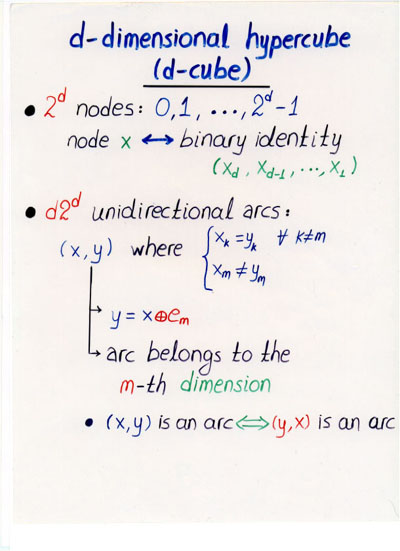 d-dimensional hypercube
(d-cube)
• 2^d nodes: 0,1, ..., 2^d-1
node x ↔ binary identity
(x_d, x_{d-1}, ..., x_1)
• d2^d unidirectional arcs:
(x,y) where { x_k = y_k ∀ k≠m
x_m ≠ y_m
→ y = x⊕e_m
→ arc belongs to the
m-th dimension
• (x,y) is an arc ⟺ (y,x) is an arc